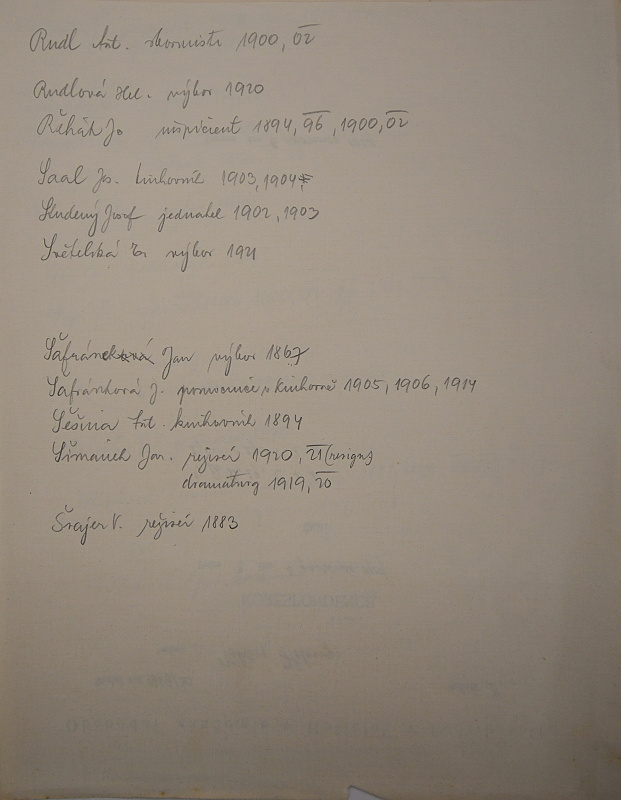 Rudl Ant. sbormistr 1900, 02
Rudlová Hel. výbor 1920
Řihák Jo inspicient 1894, 96, 1900, 02
Saal Jos. knihovník 1903, 1904
Studený Josef jednatel 1902, 1903
Světelská výbor 1921
Šafránek Jan výbor 1867
Šafránková J. pomocnice v knihovně 1905, 1906, 1914
Ant. knihovník 1894
Šimánek Jan. režisér 1920, 21 (resign)
dramaturg 1919, 20
Šrajer V. režisér 1883